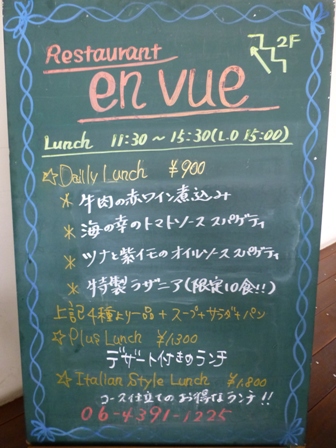 Restaurant
2F
en vue
Lunch 11:30～15:30(L.O 15:00)
☆Dailly Lunch ¥900
＊牛肉の赤ワイン煮込み
＊海の幸のトマトソース スパゲティ
＊ツナと紫イモのオイルソース スパゲティ
＊特製ラザニア(限定10食!!)
上記4種より一品+スープ+サラダ+パン
☆Plus Lunch ¥1300
デザート付きのランチ
☆Italian Style Lunch ¥1,800
コース仕立ての お得なランチ!!
06-4391-1225